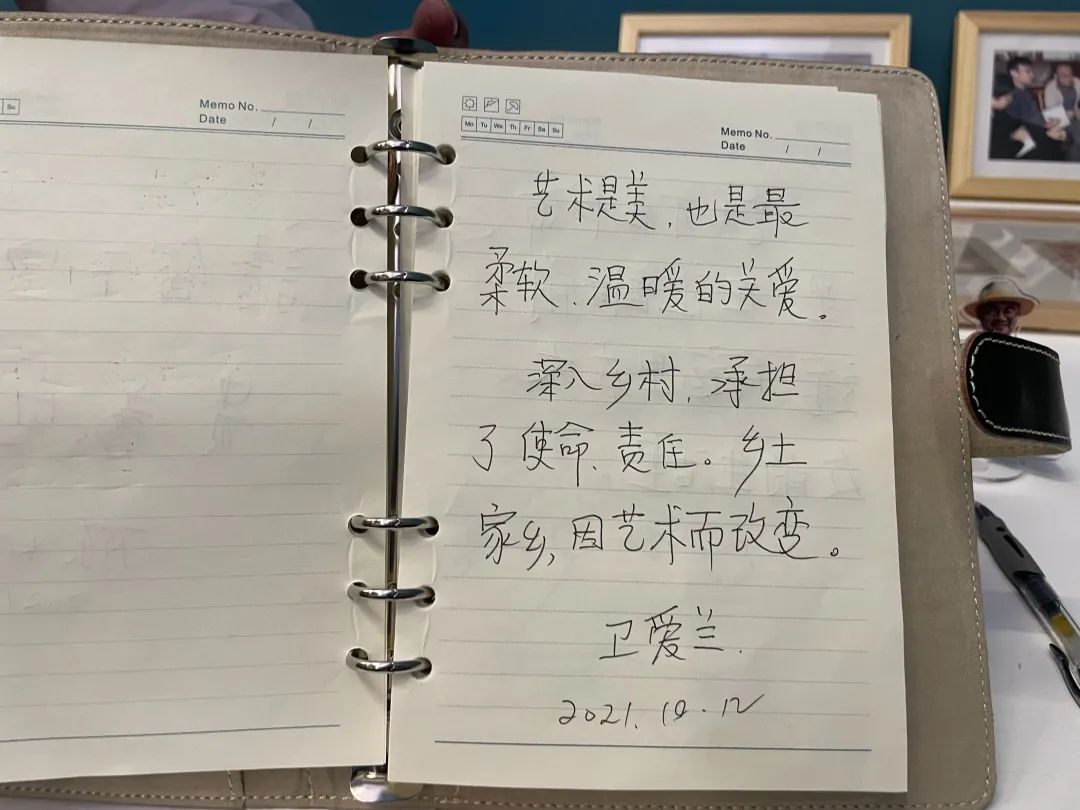 Su
Memo No.
Date / /
Mo Tu We Th Fr Sa Su
Memo No.
Date / /
艺术是美,也是最
柔软、温暖的关爱。
深入乡村,承担
了使命、责任。乡土
家乡,因艺术而改变。
卫爱兰.
2021.10.12